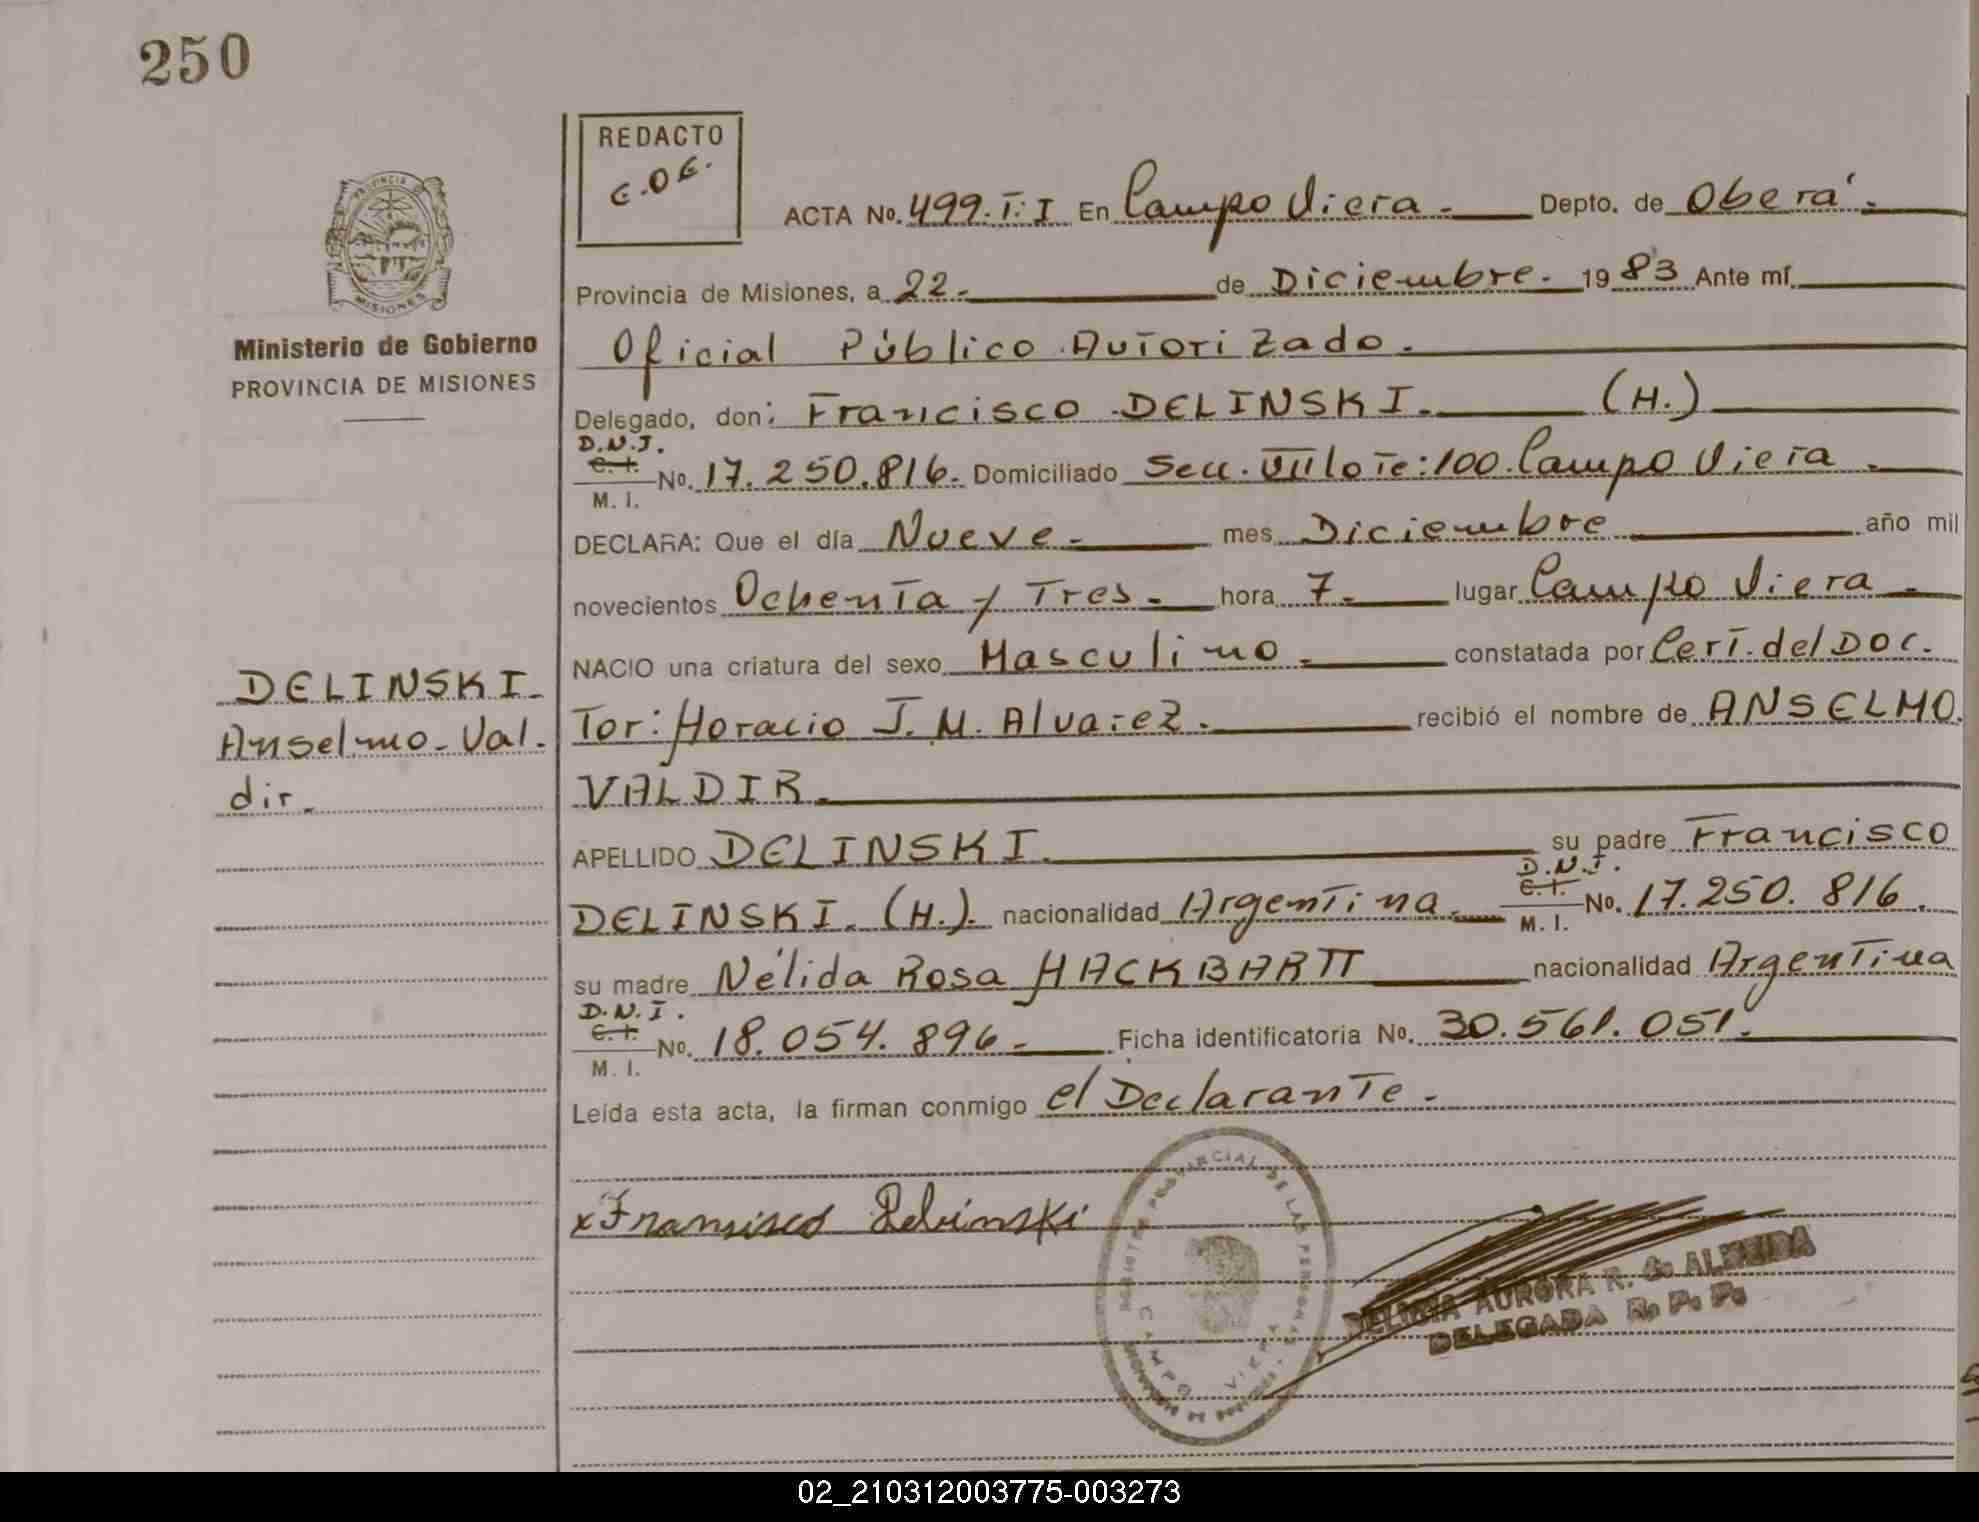 250
REDACTO
E.O.E.
ACTA No. 499.T:I En Campo Viera. Depto. de Oberá.
PROVINCIA
MISIONES
Provincia de Misiones, a 22. de Diciembre. 1983 Ante mí.
Ministerio de Gobierno
PROVINCIA DE MISIONES
Oficial Público Autorizado.
Delegado, don: Francisco DELINSKI. (H.)
D.N.I.
C. I.
M. I. No. 17.250.816. Domiciliado Secc. VII lote:100. Campo Viera.
DECLARA: Que el día Nueve. mes Diciembre año mil
novecientos Ochenta y Tres. hora 7. lugar Campo Viera.
NACIO una criatura del sexo Masculino. constatada por Cert. del Doc.
DELINSKI.
Anselmo. Val.
dir.
tor: Horacio J. M. Alvarez. recibió el nombre de ANSELMO.
VALDIR.
APELLIDO DELINSKI. su padre Francisco
DELINSKI. (H.). nacionalidad Argentina. D.N.I.
C. I.
M. I. No. 17.250.816.
su madre Nélida Rosa HACKBARTT nacionalidad Argentina
D.N.I.
C. I.
M. I. No. 18.054.896. Ficha identificatoria No. 30.561.051.
Leída esta acta, la firman conmigo el Declarante.
x Fransisco Delinski
REGISTRO PROVINCIAL DE LAS PERSONAS
CAMPO VIERA
DELICIA AURORA R. de ALMEIDA
DELEGADA R. P. P.
02_210312003775-003273